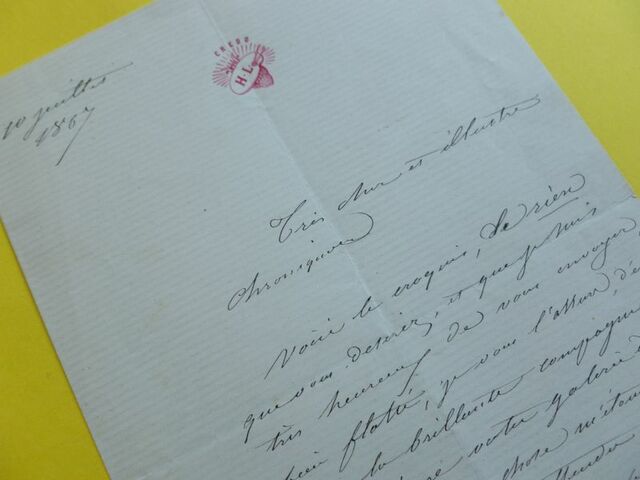 CREDO
H.L.
10 juillet
1867
Très cher et illustre
chroniqueur
Voici le croquis, de rien
que vous desirez, et que je suis
très heureux de vous envoyer,
bien flatté, je vous l'assure, d'
la brillante compagnie
votre galerie d
chose m'éton